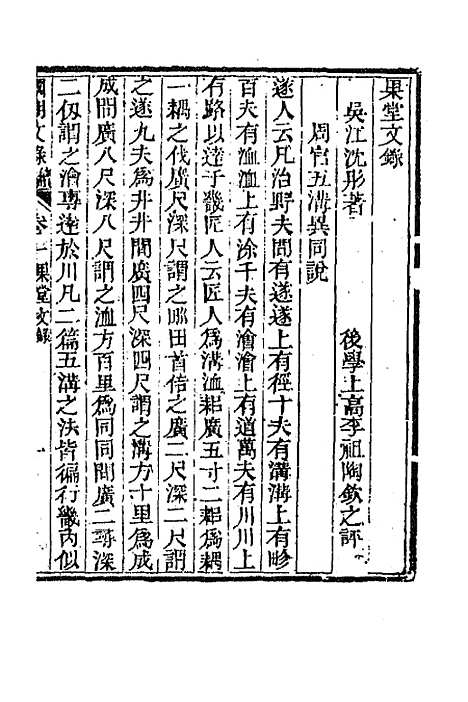 果堂文錄
吳江沈彤著　後學上高李祖陶欽之評
周官五溝異同說
遂人云凡治野夫間有遂遂上有徑十夫有溝溝上有畛
百夫有洫洫上有涂千夫有澮澮上有道萬夫有川川上
有路以達于畿匠人云匠人爲溝洫耜廣五寸二耜爲耦
一耦之伐廣尺深尺謂之𤰝田首倍之廣二尺深二尺謂
之遂九夫爲井井間廣四尺深四尺謂之溝方十里爲成
成間廣八尺深八尺謂之洫方百里爲同同間廣二尋深
二仞謂之澮專達於川凡二篇五溝之法皆徧行畿內似
國朝文錄　卷一果堂文錄　一